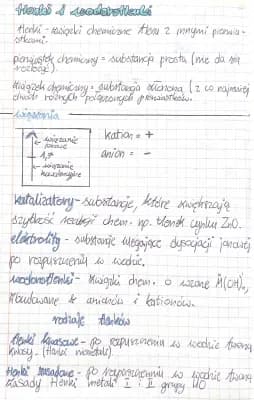 Tlenki i wodorotlenki
tlenki - związki chemiczne tlenu z innymi pierwia-
stkami.
pierwiastek chemiczny - substancja prosta (nie da się
rozłożyć).
związek chemiczny = substancja złożona (z co najmniej
dwóch różnych połączonych pierwiastków.
wiązania
wiązanie
jonowe
1,7
wiązanie
kowalencyjne
kation = +
anion = -
katalizatory - substancje, które zwiększają
szybkość reakcji chem. np. tlenek cynku ZnO.
elektrolity - substancje ulegające dysocjacji jonowej
po rozpuszczeniu w wodzie.
wodorotlenki - związki chem. o wzorze M(OH)n,
zbudowane z anionów i kationów.
rodzaje tlenków
tlenki kwasowe - po rozpuszczeniu w wodzie tworzą
kwasy. (tlenki niemetali)
tlenki zasadowe - po rozpuszczeniu w wodzie tworzą
zasady tlenki metali I i II grupy